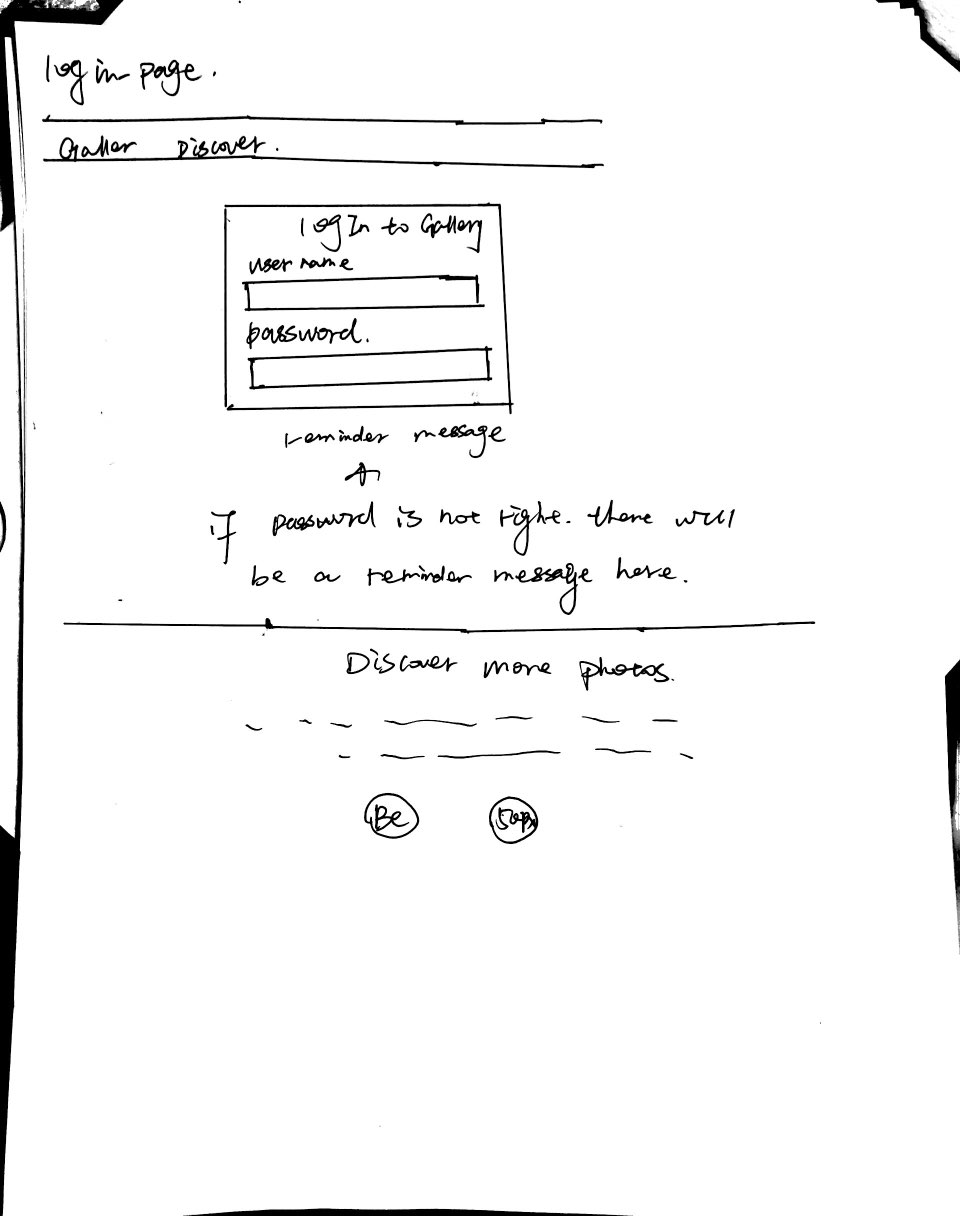 log in page.
Galler Discover.
Log In to Gallery
user name
password.
reminder message
if password is not right. there will
be a reminder message here.
Discover more photos.
Be 500px